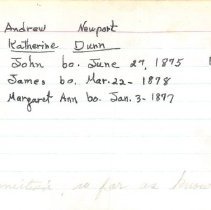 Andrew Newport
Katherine Dunn
John bo. June 27, 1875
James bo. Mar. 22 - 1878
Margaret Ann bo. Jan. 3 - 1897
so far as